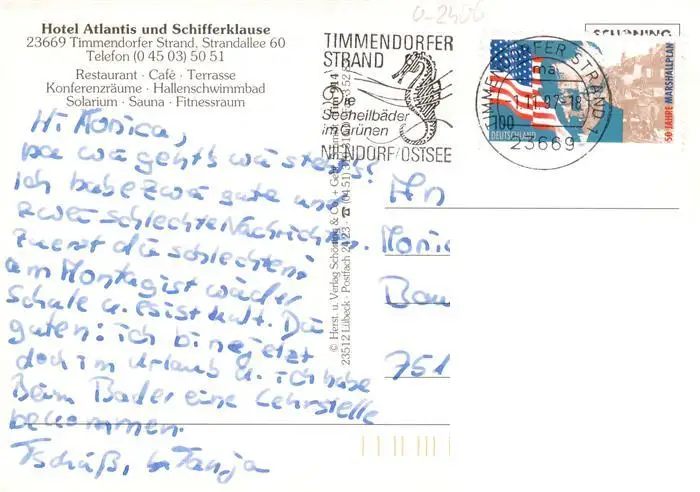 Hotel Atlantis und Schifferklause
23669 Timmendorfer Strand, Strandallee 60
Telefon (0 45 03) 50 51
Restaurant · Café · Terrasse
Konferenzräume · Hallenschwimmbad
Solarium · Sauna · Fitnessraum
Hi Monica,
na wie geht's wie steht's?
Ich habe zwei gute und
zwei schlechte Nachrichten.
Zuerst die schlechten:
am Montag ist wieder
Schule u. es ist kalt. Die
guten: ich bin jetzt
doch im Urlaub u. ich habe
Beim Bader eine Lehrstelle
bekommen.
Tschüß, Tanja
TIMMENDORFER
STRAND
Seeheilbäder
im Grünen
NIENDORF/OSTSEE
© Herst. u. Verlag Schöning & Co. + Ge
23512 Lübeck · Postfach 24 23 · ☎ (04 51)
TIMMENDORFER STRAND 1
-1.11.97-18
23669
100
DEUTSCHLAND
50 JAHRE MARSHALLPLAN
SCHÖNING
An
Monic
Bau
751